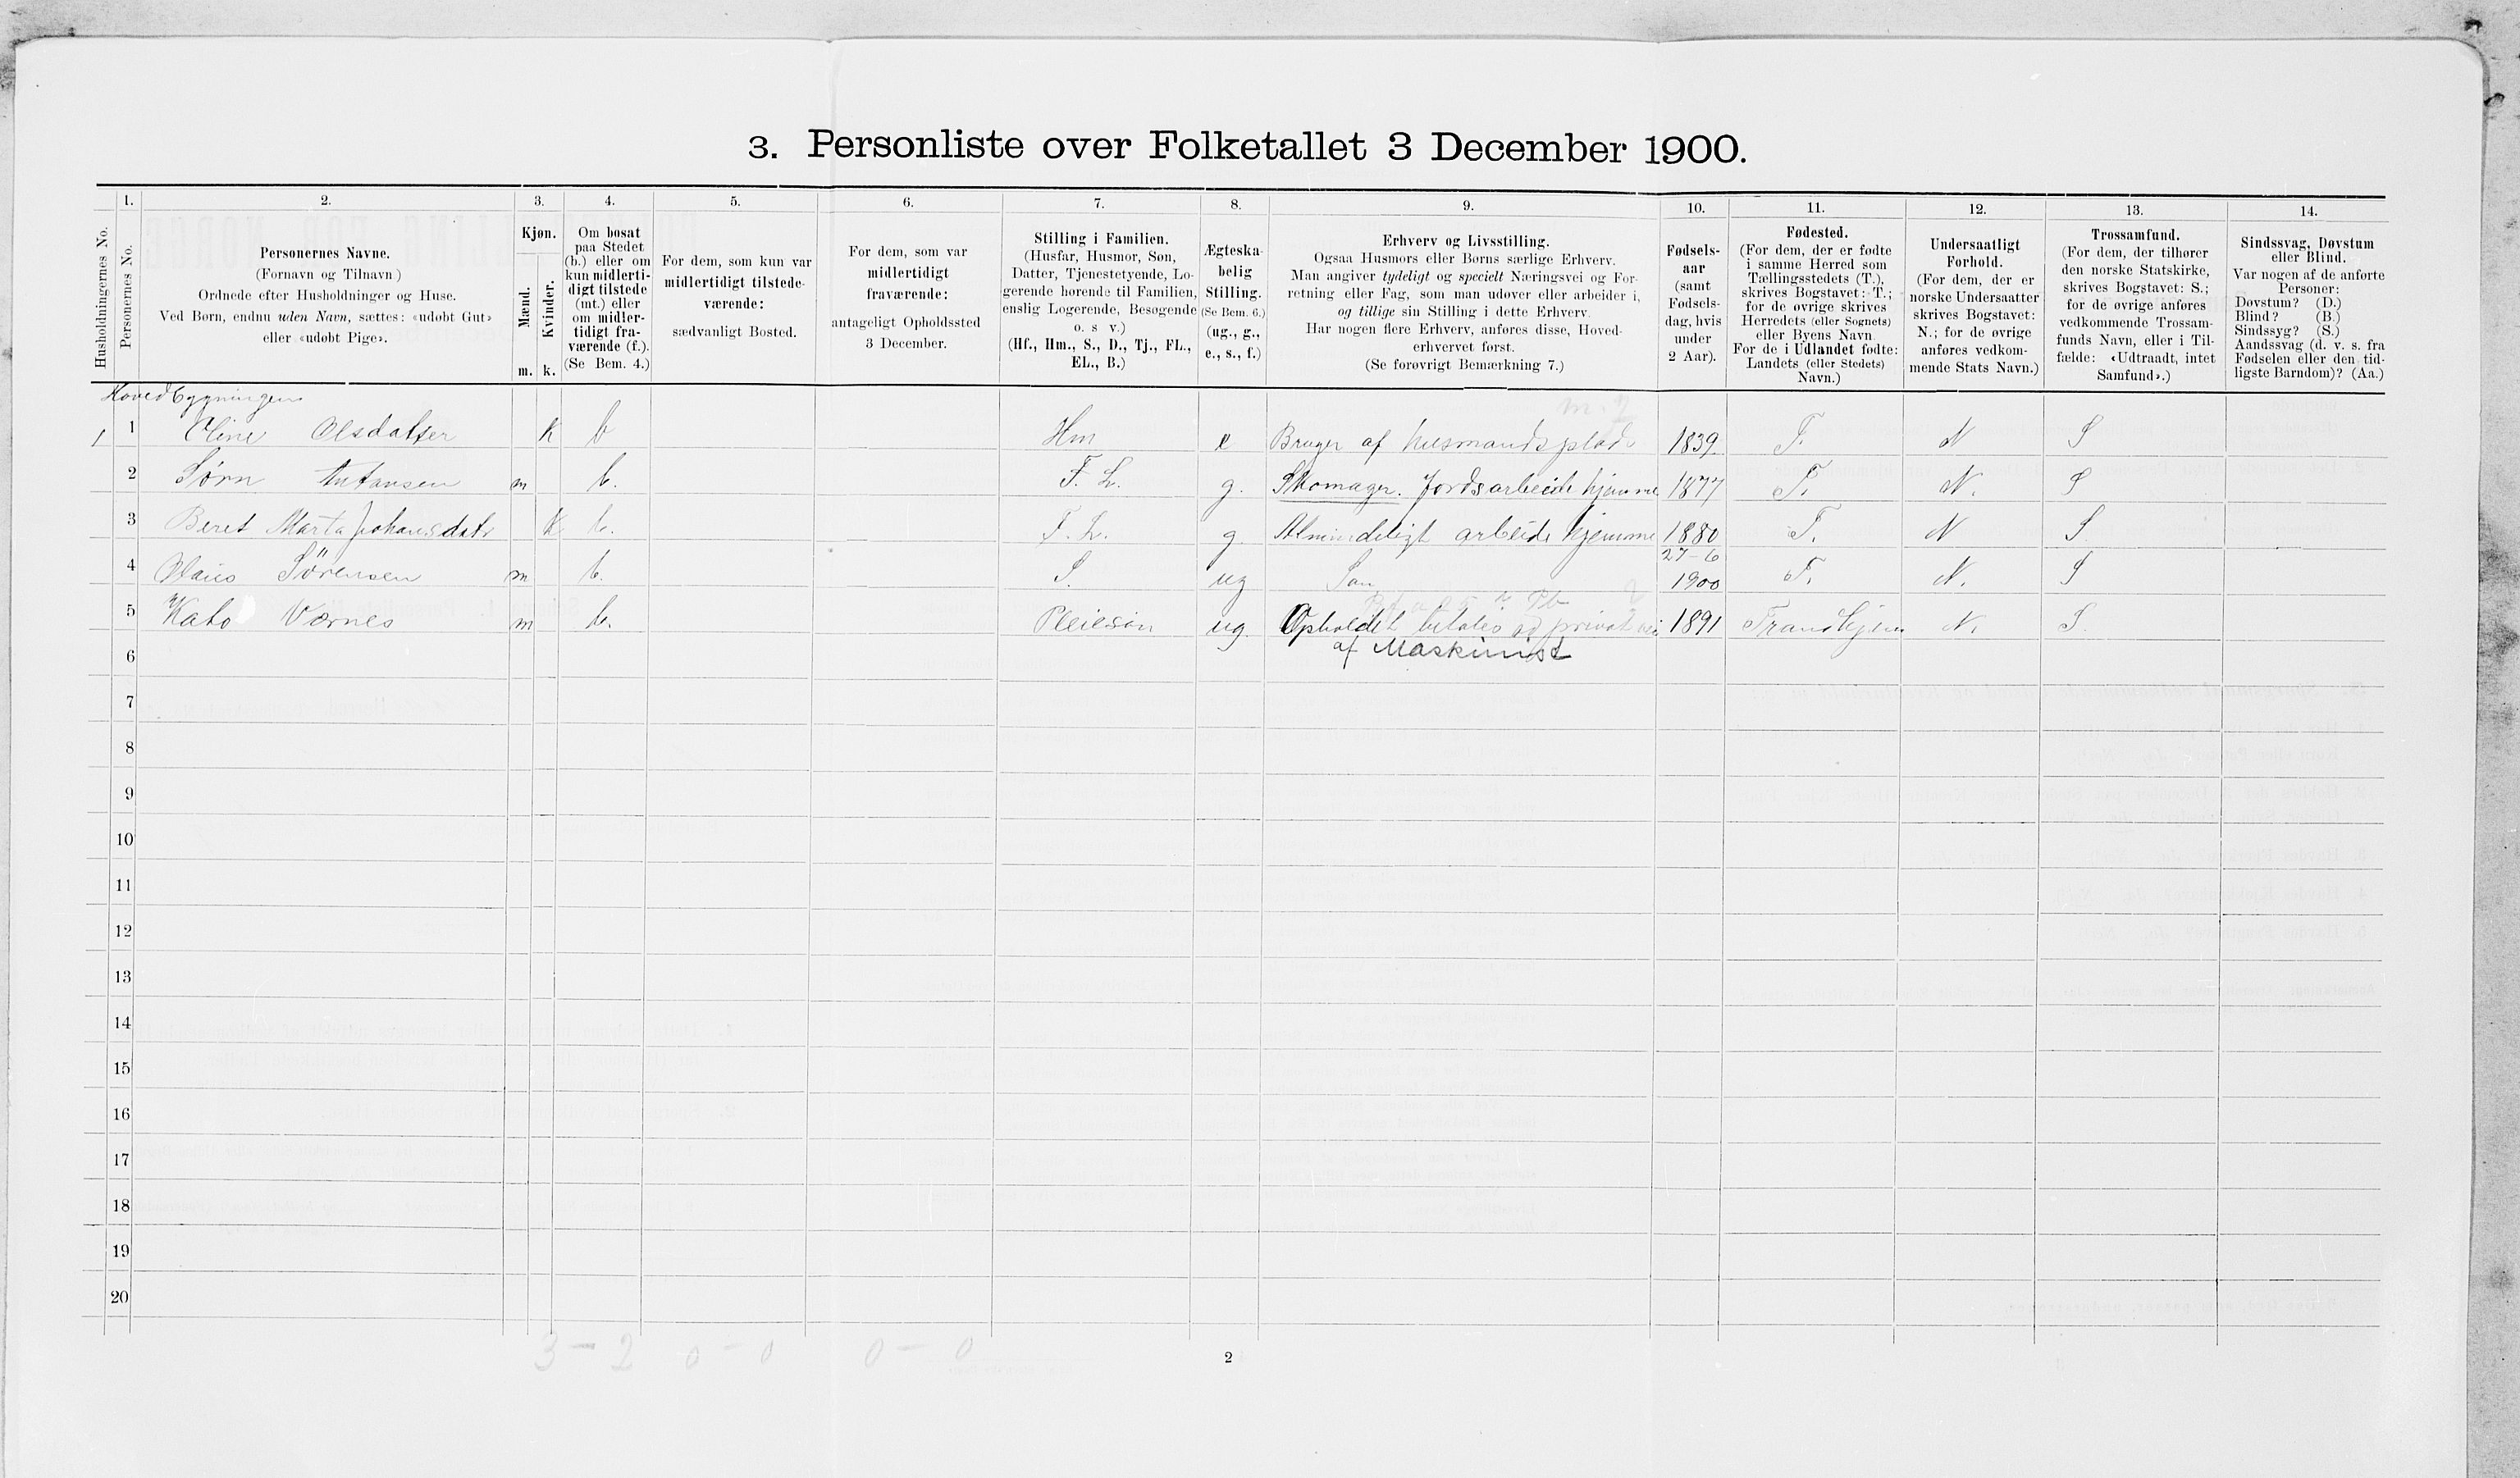 3. Personliste over Folketallet 3 December 1900.
1. 2. 3. 4. 5. 6. 7. 8. 9. 10. 11. 12. 13. 14.
Husholdningernes No.
Personernes No.
Personernes Navne.
(Fornavn og Tilnavn)
Ordnede efter Husholdninger og Huse.
Ved Børn, endnu uden Navn, sættes: «udøbt Gut»
eller «udøbt Pige».
Kjøn.
Mænd.
Kvinder.
m. k.
Om bosat
paa Stedet
(b.) eller om
kun midlerti-
digt tilstede
(mt.) eller
om midler-
tidigt fra-
værende (f.).
(Se Bem. 4.)
For dem, som kun var
midlertidigt tilstede-
værende:
sædvanligt Bosted.
For dem, som var
midlertidigt
fraværende:
antageligt Opholdssted
3 December.
Stilling i Familien.
(Husfar, Husmor, Søn,
Datter, Tjenestetyende, Lo-
gerende hørende til Familien,
enslig Logerende, Besøgende
o. s v.)
(Hf., Hm., S., D., Tj., FL.,
EL., B.)
Ægteska-
belig
Stilling.
(Se Bem. 6.)
(ug., g.,
e., s., f.)
Erhverv og Livsstilling.
Ogsaa Husmors eller Børns særlige Erhverv.
Man angiver tydeligt og specielt Næringsvei og For-
retning eller Fag, som man udøver eller arbeider i,
og tillige sin Stilling i dette Erhverv.
Har nogen flere Erhverv, anføres disse, Hoved-
erhvervet først.
(Se forøvrigt Bemærkning 7.)
Fødsels-
aar
(samt
Fødsels-
dag, hvis
under
2 Aar).
Fødested.
(For dem, der er fødte
i samme Herred som
Tællingsstedets (T.),
skrives Bogstavet: T.;
for de øvrige skrives
Herredets (eller Sognets)
eller Byens Navn
For de i Udlandet fødte:
Landets (eller Stedets)
Navn.)
Undersaatligt
Forhold.
(For dem, der er
norske Undersaatter
skrives Bogstavet:
N.; for de øvrige
anføres vedkom-
mende Stats Navn.)
Trossamfund.
(For dem, der tilhører
den norske Statskirke,
skrives Bogstavet: S.;
for de øvrige anføres
vedkommende Trossam-
funds Navn, eller i Til-
fælde: «Udtraadt, intet
Samfund».)
Sindssvag, Døvstum
eller Blind.
Var nogen af de anførte
Personer:
Døvstum? (D.)
Blind? (B.)
Sindssyg? (S.)
Aandssvag (d. v. s. fra
Fødselen eller den tid-
ligste Barndom)? (Aa.)
Hovedbygningen
1 1 Oline Olsdatter K b Hm e Bruger af husmandsplads 1839 T. N S
2 Sørn Antonsen m b. F. L. g. Skomager. Jordsarbeide hjemme 1877 T. N. S
3 Beret Marta Johansdatr K b. F. L. g. Almindeligt arbeide hjemme 1880 T. N S
27-6
4 Olaus Sörensen m b. S. ug Søn 1900 T. N. S
5 Kato Værnes m b. Pleiesøn ug. Opholdet betales ad privat vei 1891 Trondhjem N. S.
6 af Maskinist
7
8
9
10
11
12
13
14
15
16
17
18
19
20
3 - 2 0 - 0 0 - 0
2